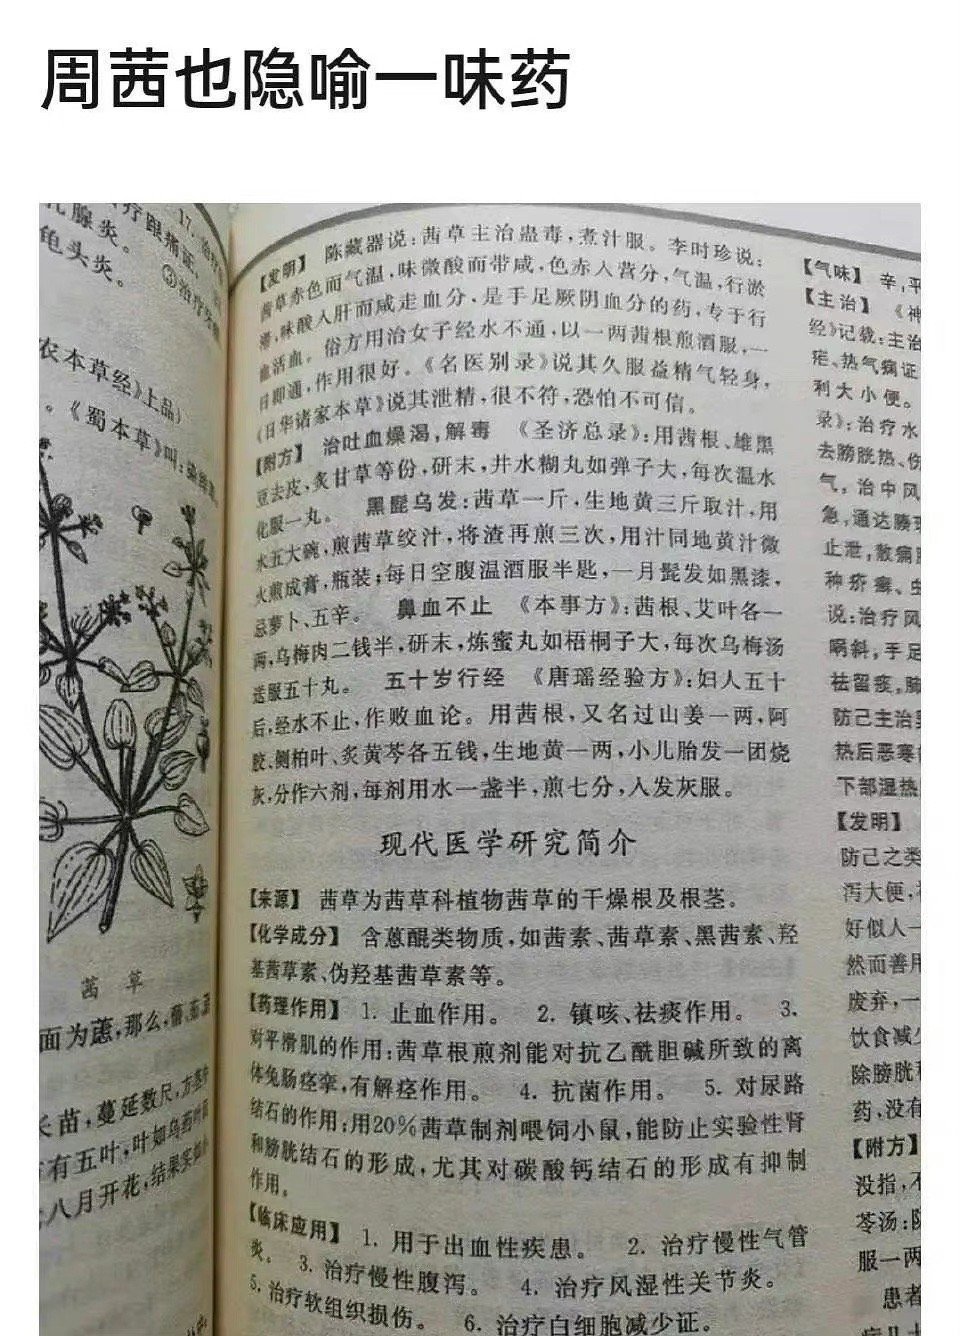 周茜也隐喻一味药
17.
疗跟痛证。
腺炎。
龟头炎。
农本草经》上品)
。《蜀本草》叫:
茜 草
面为蒠,那么,
长苗,蔓延数尺,
有五叶,叶如乌药叶
八月开花,结果实如
【发明】 陈藏器说:茜草主治蛊毒,煮汁服。李时珍说:
茜草赤色而气温,味微酸而带咸,色赤入营分,气温,行淤
滞,味酸入肝而咸走血分,是手足厥阴血分的药,专于行
血活血。俗方用治女子经水不通,以一两茜根煎酒服,一
日即通,作用很好。《名医别录》说其久服益精气轻身,
《日华诸家本草》说其泄精,很不符,恐怕不可信。
【附方】 治吐血燥渴,解毒 《圣济总录》:用茜根、雄黑
豆去皮,炙甘草等份,研末,井水糊丸如弹子大,每次温水
化服一丸。 黑髭乌发:茜草一斤,生地黄三斤取汁,用
水五大碗,煎茜草绞汁,将渣再煎三次,用汁同地黄汁微
火煎成膏,瓶装;每日空腹温酒服半匙,一月髭发如黑漆,
忌萝卜、五辛。 鼻血不止 《本事方》:茜根、艾叶各一
两,乌梅肉二钱半,研末,炼蜜丸如梧桐子大,每次乌梅汤
送服五十丸。 五十岁行经 《唐瑶经验方》:妇人五十
后,经水不止,作败血论。用茜根,又名过山姜一两,阿
胶、侧柏叶、炙黄芩各五钱,生地黄一两,小儿胎发一团烧
灰,分作六剂,每剂用水一盏半,煎七分,入发灰服。
现代医学研究简介
【来源】 茜草为茜草科植物茜草的干燥根及根茎。
【化学成分】 含蒽醌类物质,如茜素、茜草素、黑茜素、羟
基茜草素、伪羟基茜草素等。
【药理作用】 1. 止血作用。 2. 镇咳、祛痰作用。 3.
对平滑肌的作用:茜草根煎剂能对抗乙酰胆碱所致的离
体兔肠痉挛,有解痉作用。 4. 抗菌作用。 5. 对尿路
结石的作用:用20%茜草制剂喂饲小鼠,能防止实验性肾
和膀胱结石的形成,尤其对碳酸钙结石的形成有抑制
作用。
【临床应用】 1. 用于出血性疾患。 2. 治疗慢性气管
炎。 3. 治疗慢性腹泻。 4. 治疗风湿性关节炎。
5. 治疗软组织损伤。 6. 治疗白细胞减少证。
【气味】 辛,平
【主治】 《神
经》记载:主治
疟、热气痫证
利大小便。
录》:治疗水
去膀胱热、伤
气,治中风
急,通达腠理
止泄,散痈
种疥癣、虫
说:治疗风
㖞斜,手足
祛留痰,肺
防己主治
热后恶寒
下部湿热
【发明】
防己之类
泻大便,
好似人一
然而善用
废弃,一
饮食减少
除膀胱
药,没有
【附方】
没指,不
苓汤:防
服一两
患者